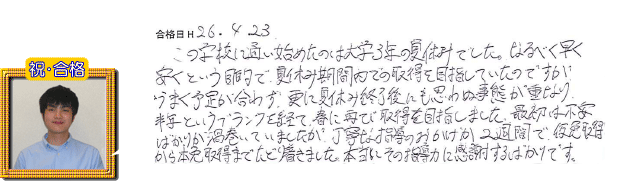 祝・合格
合格日H26.4.23
この学校に通い始めたのは大学3年の夏休みでした。なるべく早く
安くという目的で、夏休み期間内での取得を目指していたのですが
うまく予定が合わず、更に夏休み終了後にも思わぬ事態が重なり、
半年というブランクを経て、春に再び取得を目指しました。最初は不安
ばかりが渦巻いていましたが、丁寧な指導のおかげか、2週間で仮免取得
から本免取得までたどり着きました。本当にその指導力に感謝するばかりです。